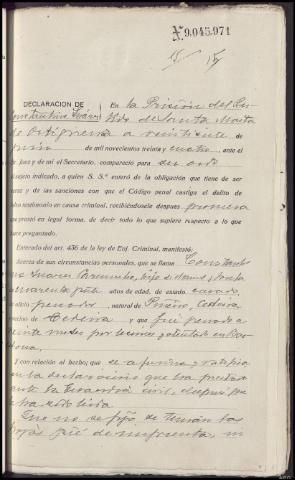 9.045.971
DECLARACIÓN DE En la Prisión del Par-
Constantino Suárez tido de Santa Marta
de Ortigueira a veintisiete de
junio de mil novecientos treinta y cuatro, ante el
Sr. Juez y de mi el Secretario, compareció para ser oído
el sujeto indicado, a quien S. S.ª enteró de la obligación que tiene de ser
veraz y de las sanciones con que el Código penal castiga el delito de
falso testimonio en causa criminal, recibiéndosele después promesa
que prestó en legal forma, de decir todo lo que supiere respecto a lo que
fuere preguntado.
Enterado del art. 436 de la ley de Enj. Criminal, manifestó:
Acerca de sus circunstancias personales, que se llama Constanti-
no Suárez hijo de y Josefa
cuarenta años de edad, de estado casado
pescador, natural de Piñeiro, Cedeira
vecino de Cedeira y que fué penado a
veinte meses por lesiones en Bar-
celona.
Y con relación al hecho; que se afirma y ratifica
en la declaración que ha prestado
ante la Guardia civil, después que
le ha sido leída
Que no se fijó de quien las
fué de imprenta, ni